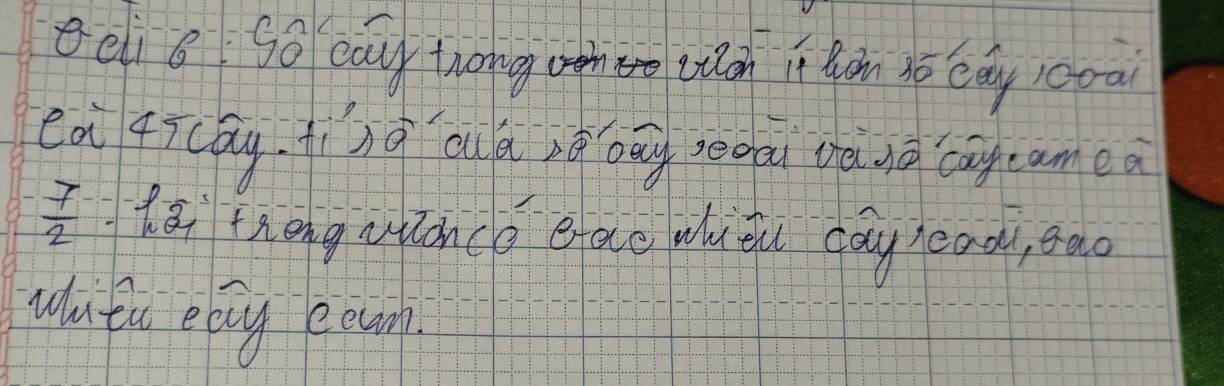 Bài 6: Số cây trong vườn ít hơn số cây xoài
là 45 cây. tỉ số của số cây xoài và số cây cam là
7/2. hỏi trong vườn có bao nhiêu cây xoài, bao
nhiêu cây cam.